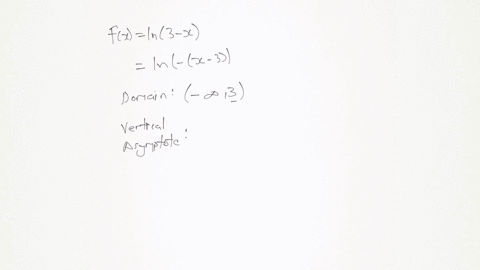 f(x) = ln(3-x)
= ln(-(x-3))
Domain: (-∞, 3)
Vertical
Asymptote: